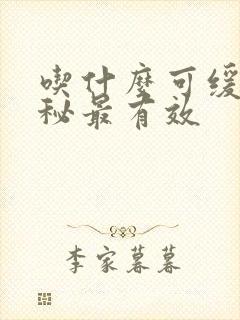 喫什麼可緩
秘最有效
李家暮暮